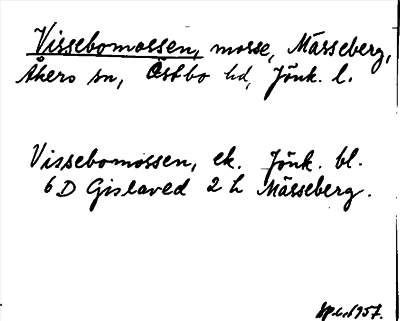 Vissebomossen, mosse, Mässeberg,
Åkers sn, Östbo hd, Jönk. l.
Vissebomossen, ek. Jönk. bl.
6 D Gislaved 2 h Mässeberg.
1957.